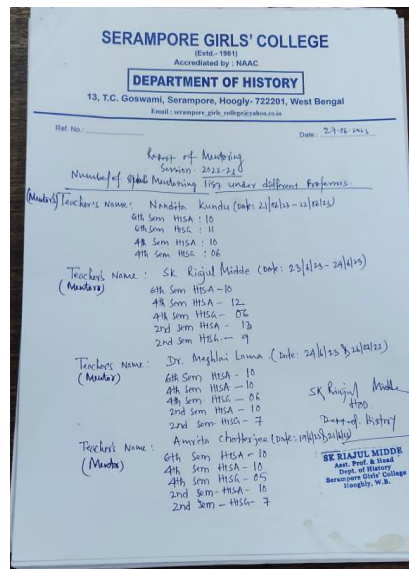 SERAMPORE GIRLS' COLLEGE
(Estd.- 1981)
Accredited by : NAAC
DEPARTMENT OF HISTORY
13, T.C. Goswami, Serampore, Hoogly- 722201, West Bengal
Email : serampore_girls_college@yahoo.co.in
Ref. No.: Date: 27-06-2023
Report of Mentoring
Session: 2022-23
Number of Mentoring list under different Professors.
(Mentors) Teacher's Name: Nandita Kundu (Date: 21/02/23 - 22/02/23)
6th Sem HISA : 10
6th Sem HISG : 11
4th Sem HISA : 10
4th Sem HISG : 06
Teacher's Name : SK Riajul Midde (Date: 23/6/23 - 24/6/23)
(Mentors)
6th Sem HISA - 10
4th Sem HISA - 12
4th Sem HISG - 06
2nd Sem HISA - 13
2nd Sem HISG - 9
Teacher's Name : Dr. Meghlai Lama (Date: 24/6/23 &
(Mentor)
6th Sem HISA - 10
4th Sem HISA - 10
4th Sem HISG - 06
2nd Sem HISA - 10
2nd Sem HISG - 7
SK Riajul Midde
HOD
Dept. of History
Teacher's Name : Amrita Chatterjee (Date:
(Mentor)
6th Sem HISA - 10
4th Sem HISA - 10
4th Sem HISG - 05
2nd Sem - HISA - 10
2nd Sem - HISG - 7
SK RIAJUL MIDDE
Asst. Prof. & Head
Dept. of History
Serampore Girls' College
Hooghly, W.B.